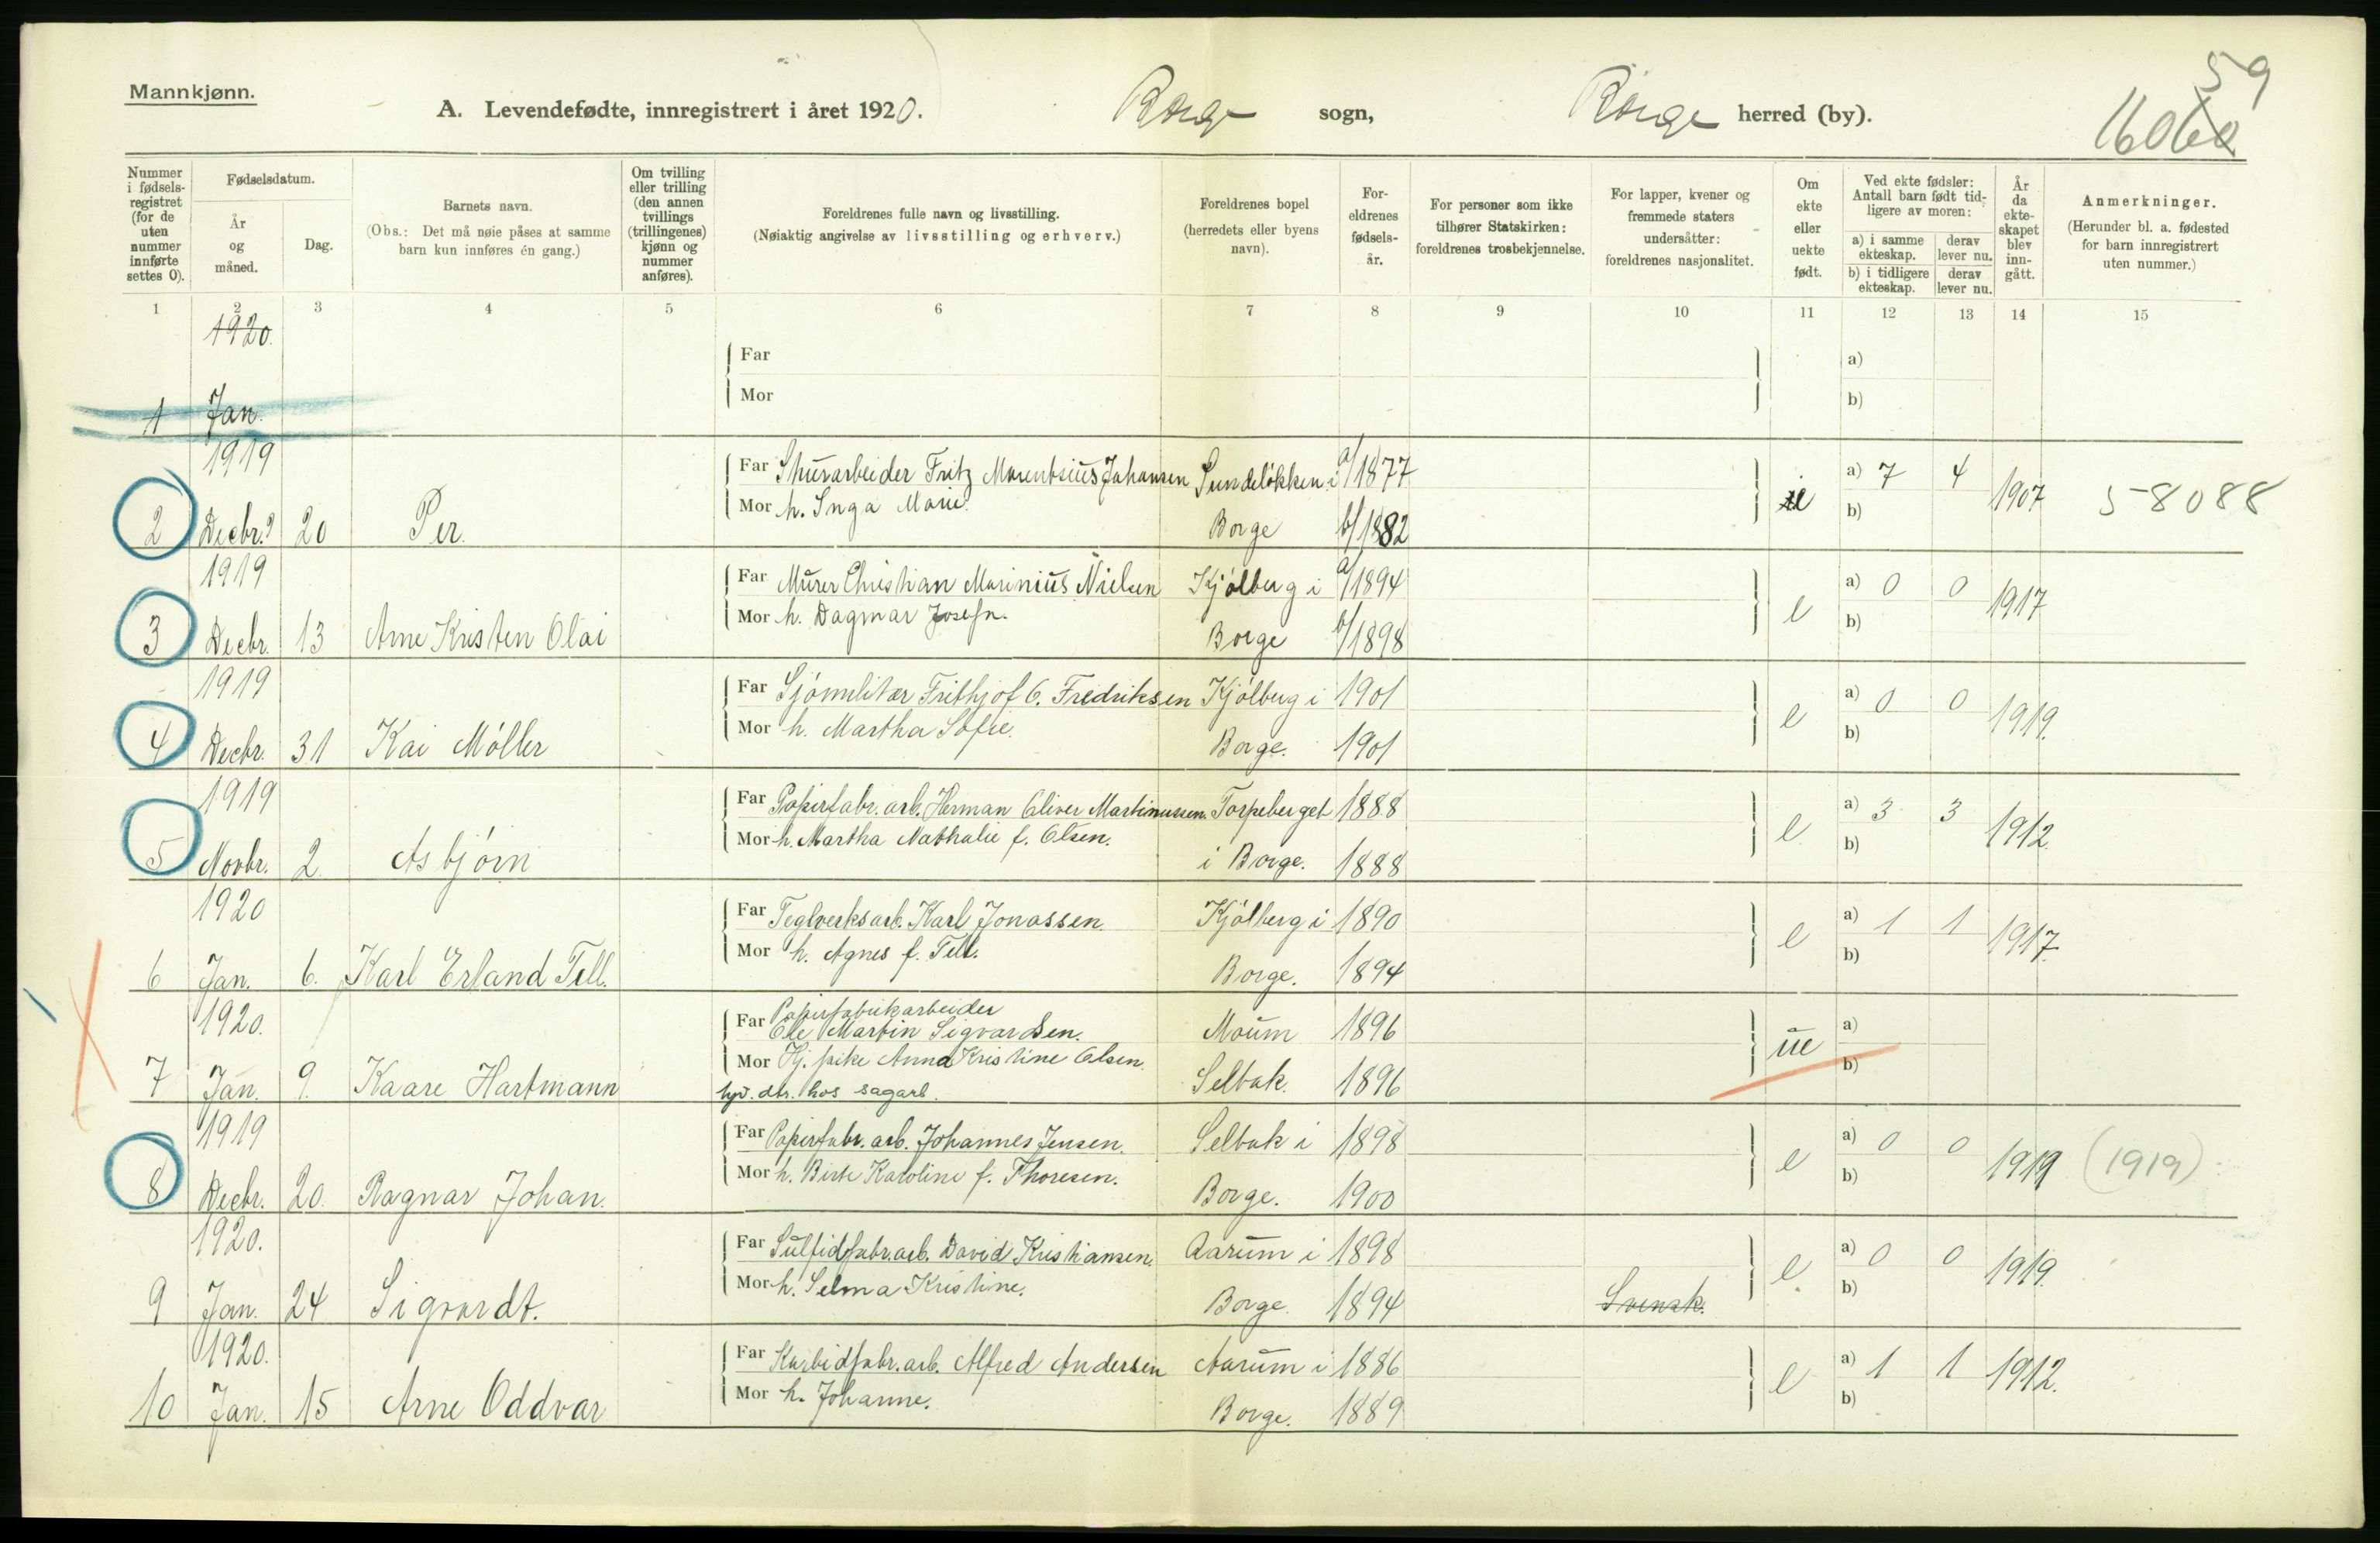 Mannkjønn.
A. Levendefødte, innregistrert i året 1920. Borge sogn, Borge herred (by).
59
Nummer i fødselsregistret (for de uten nummer innførte settes 0).
Fødselsdatum.
År og måned.
Dag.
Barnets navn.
(Obs.: Det må nøie påses at samme barn kun innføres én gang.)
Om tvilling eller trilling (den annen tvillings (trillingenes) kjønn og nummer anføres).
Foreldrenes fulle navn og livsstilling.
(Nøiaktig angivelse av livsstilling og erhverv.)
Foreldrenes bopel (herredets eller byens navn).
Foreldrenes fødselsår.
For personer som ikke tilhører Statskirken: foreldrenes trosbekjennelse.
For lapper, kvener og fremmede staters undersåtter: foreldrenes nasjonalitet.
Om ekte eller uekte født.
Ved ekte fødsler: Antall barn født tidligere av moren:
a) i samme ekteskap.
derav lever nu.
b) i tidligere ekteskap.
derav lever nu.
År da ekteskapet blev inngått.
Anmerkninger.
(Herunder bl. a. fødested for barn innregistrert uten nummer.)
1 2 3 4 5 6 7 8 9 10 11 12 13 14 15
1920.
Far a)
Mor b)
1 Jan.
1919
Far Fritz Johansen Sundeløkken i a/1877 a) 7 4
Mor h. Inga Marie. b) 1907 58088
2 Decbr. 20 Per. Borge b/1882
1919
Far Murer Christian Marinius Nielsen Kjølberg i a/1894 a) 0 0
Mor h. Dagmar Josefn. e b) 1917
3 Decbr. 13 Arne Kristen Olai Borge b/1898
1919
Far Sjømilitær Frithjof O. Fredriksen Kjølberg i 1901 a) 0 0
Mor h. Martha Sofie. e b) 1919.
4 Decbr. 31 Kai Møller Borge. 1901
1919
Far Papirfabr. arb. Herman Oliver Martinussen. Torpeberget 1888 a) 3 3
Mor h. Martha Nathalie f. Olsen. e b) 1912.
5 Novbr. 2. Asbjørn i Borge. 1888
1920
Far Teglverksarb. Karl Jonassen. Kjølberg i 1890 a) 1 1
Mor h. Agnes f. Tell. e b) 1917.
6 Jan. 6. Karl Erland Tell. Borge. 1894
1920.
Papirfabrikarbeider
Far Ole Martin Sigvardsen. Moum 1896 ue a)
Mor Hj. pike Anna Kristine Olsen. b)
7 Jan. 9. Kaare Hartmann hos sagarb. Selbak. 1896
1919
Far Papirfabr. arb. Johannes Jensen. Selbak i 1898 a) 0 0
Mor h. Birte Karoline f. Thoresen. e b) 1919 (1919)
8 Decbr. 20. Ragnar Johan. Borge. 1900
1920.
Far Sulfidfabr. arb. David Kristiansen Aarum i 1898 a) 0 0
Mor h. Selma Kristine. e b) 1919.
9 Jan. 24 Sigvardt. Borge. 1894 Svensk.
1920.
Far Karbidfabr. arb. Alfred Andersen Aarum i 1886 a) 1 1
Mor h. Johanne. e b) 1912.
10 Jan. 15 Arne Oddvar Borge. 1889